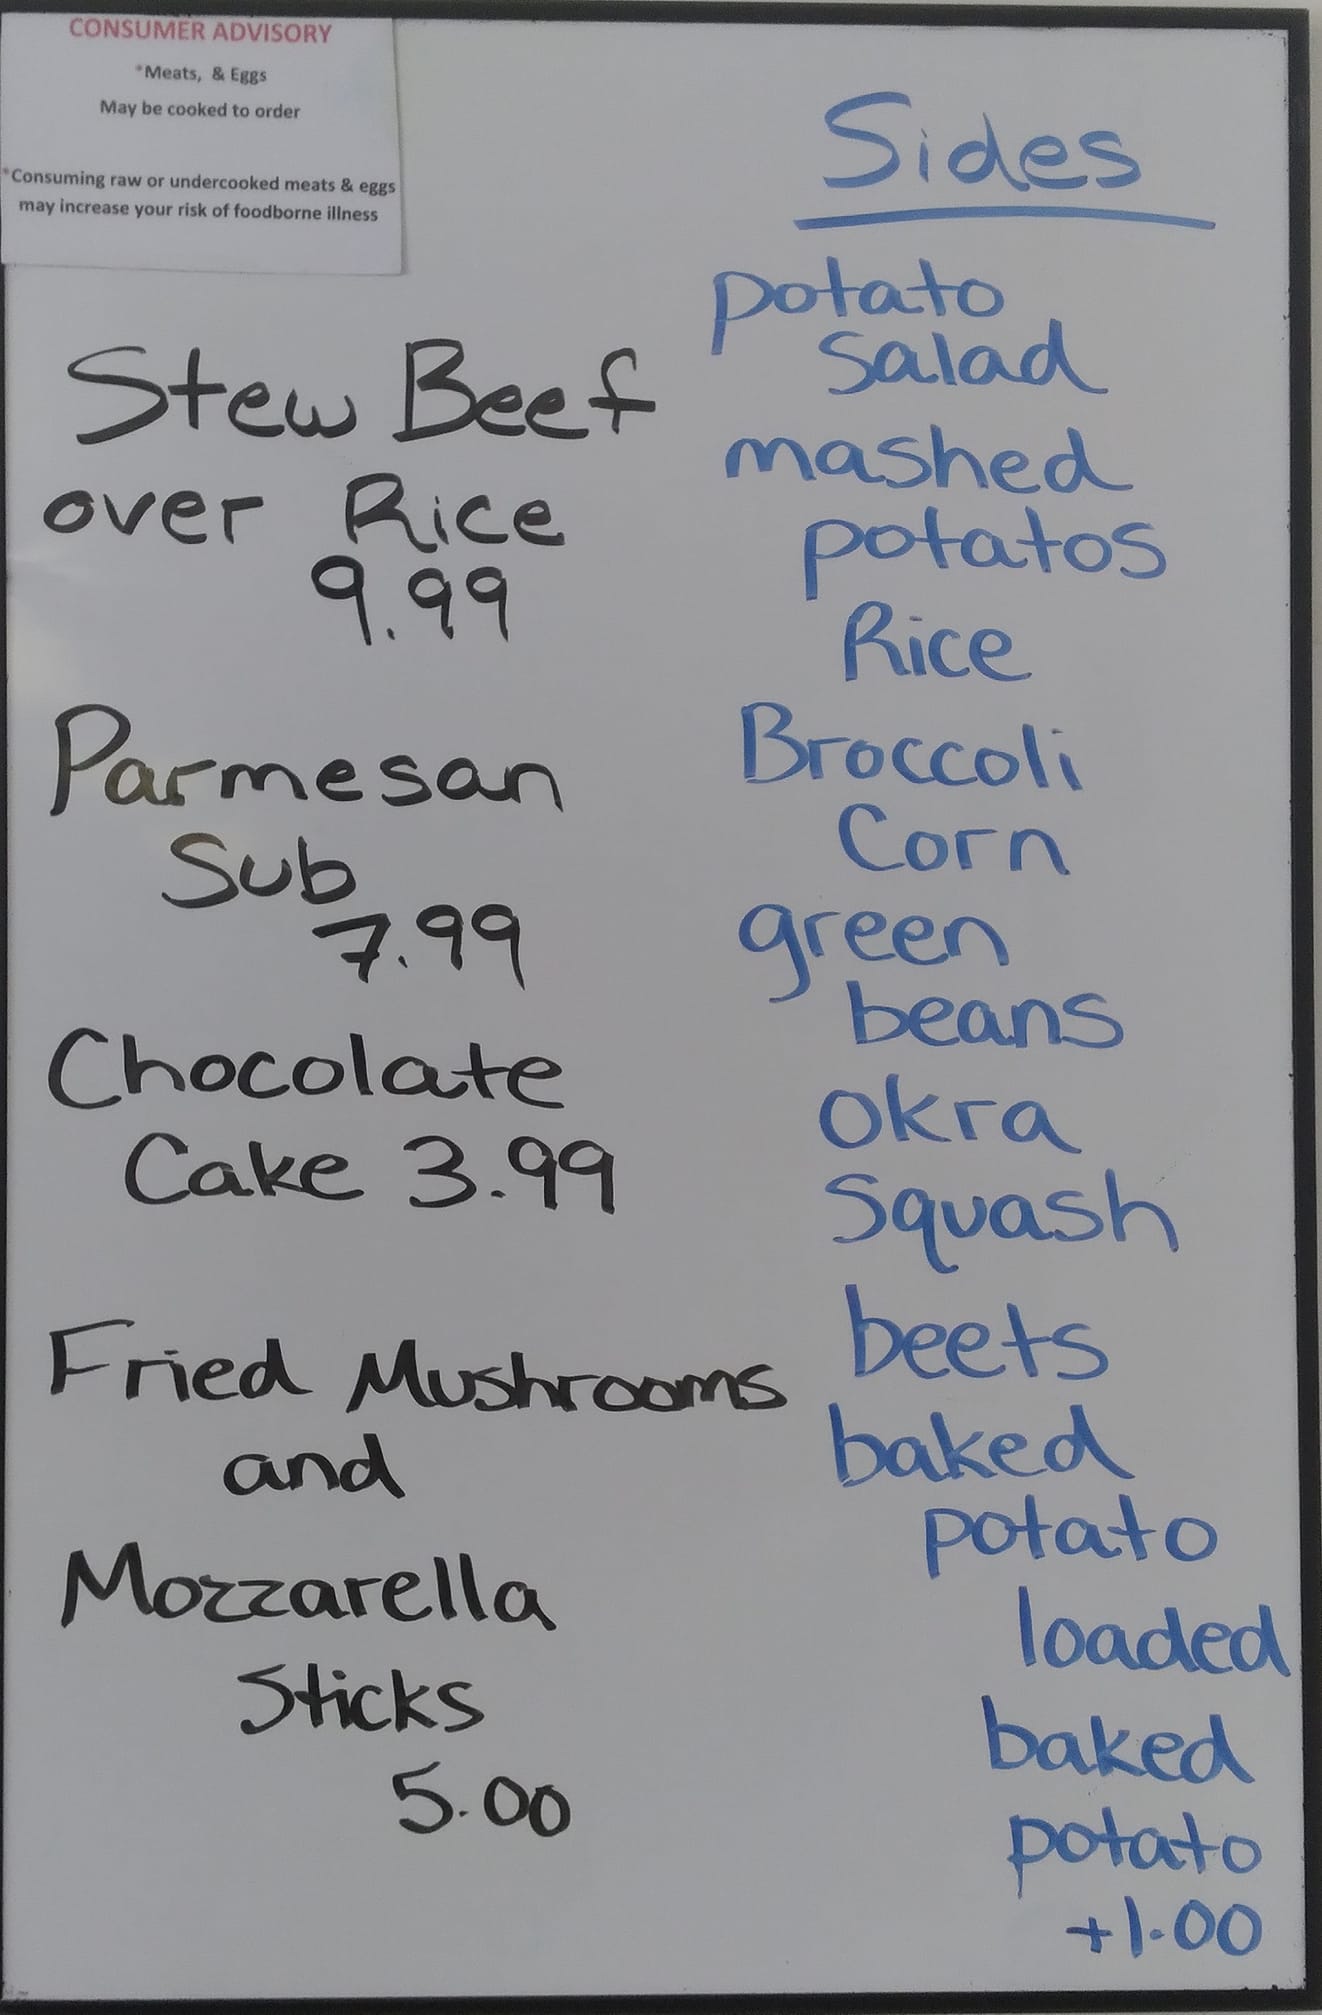 CONSUMER ADVISORY
*Meats, & Eggs
May be cooked to order
*Consuming raw or undercooked meats & eggs
may increase your risk of foodborne illness
Stew Beef
over Rice
9.99
Parmesan
Sub
7.99
Chocolate
Cake 3.99
Fried Mushrooms
and
Mozzarella
Sticks
5.00
Sides
potato
salad
mashed
potatos
Rice
Broccoli
Corn
green
beans
okra
Squash
beets
baked
potato
loaded
baked
potato
+1.00